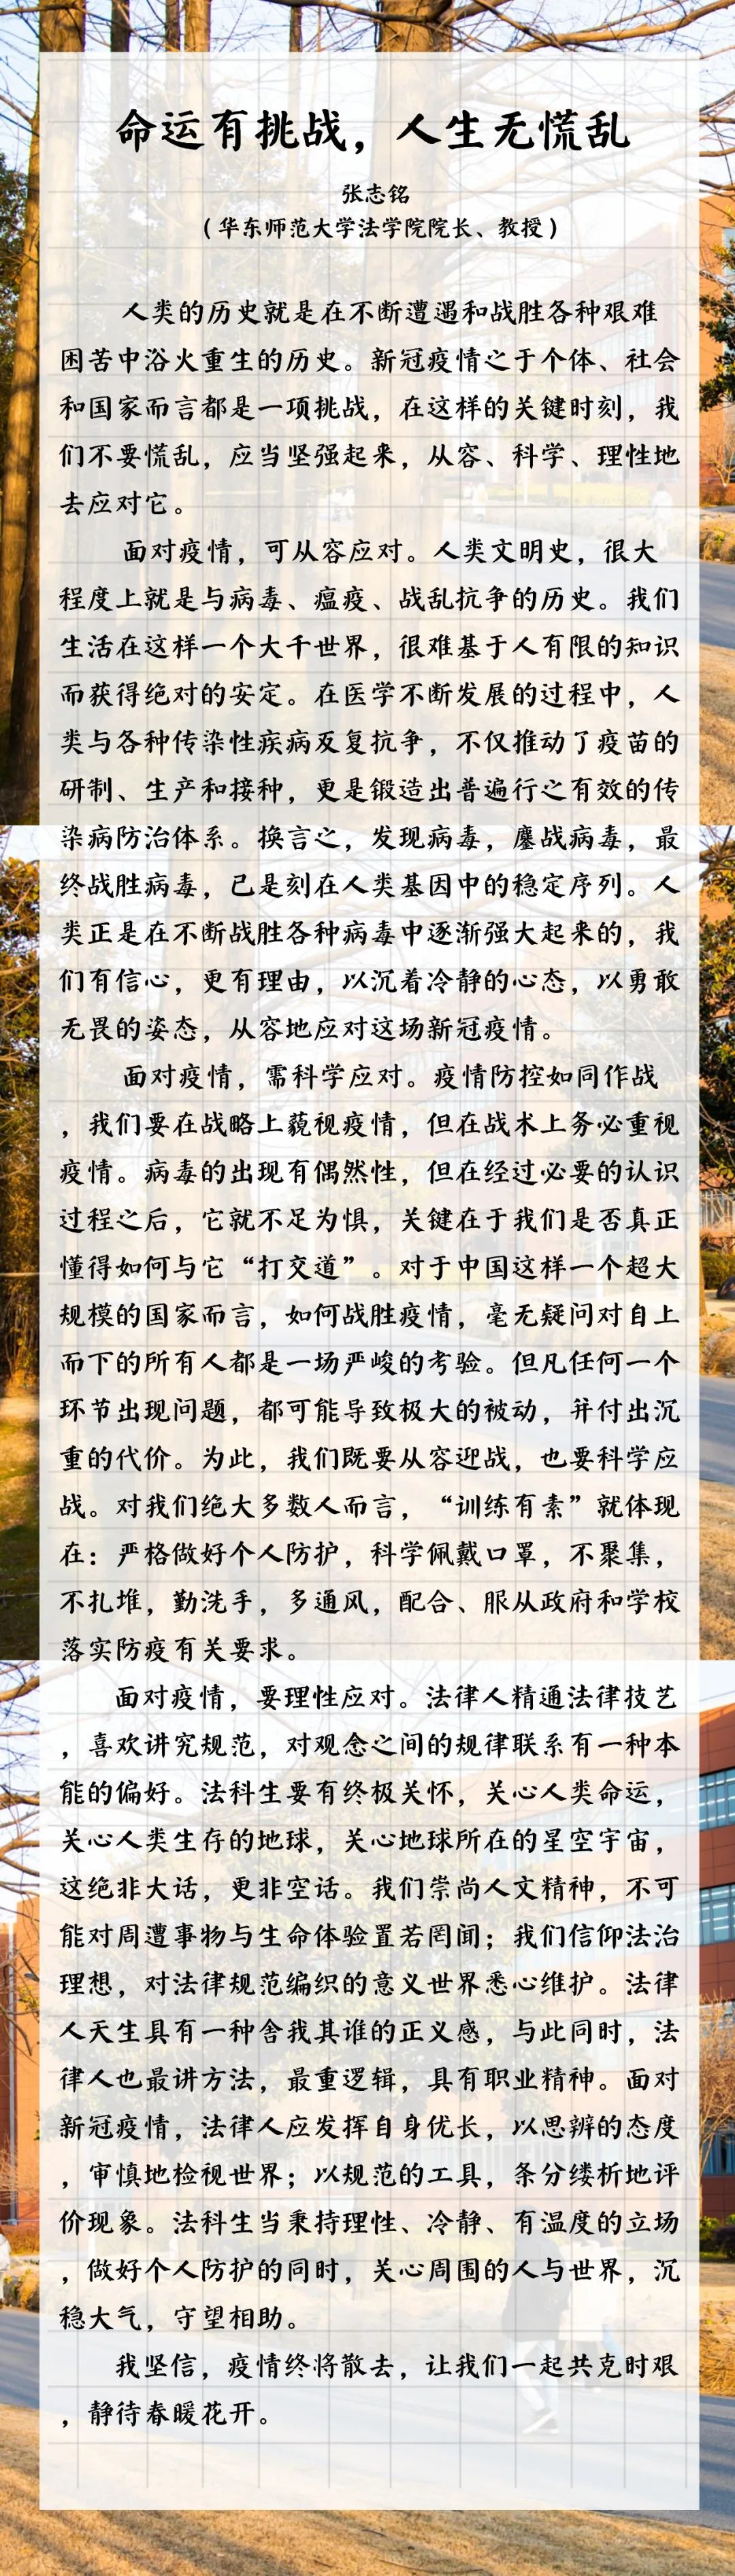 命运有挑战，人生无慌乱
张志铭
（华东师范大学法学院院长、教授）
人类的历史就是在不断遭遇和战胜各种艰难
困苦中浴火重生的历史。新冠疫情之于个体、社会
和国家而言都是一项挑战，在这样的关键时刻，我
们不要慌乱，应当坚强起来，从容、科学、理性地
去应对它。
面对疫情，可从容应对。人类文明史，很大
程度上就是与病毒、瘟疫、战乱抗争的历史。我们
生活在这样一个大千世界，很难基于人有限的知识
而获得绝对的安定。在医学不断发展的过程中，人
类与各种传染性疾病反复抗争，不仅推动了疫苗的
研制、生产和接种，更是锻造出普遍行之有效的传
染病防治体系。换言之，发现病毒，鏖战病毒，最
终战胜病毒，已是刻在人类基因中的稳定序列。人
类正是在不断战胜各种病毒中逐渐强大起来的，我
们有信心，更有理由，以沉着冷静的心态，以勇敢
无畏的姿态，从容地应对这场新冠疫情。
面对疫情，需科学应对。疫情防控如同作战
，我们要在战略上藐视疫情，但在战术上务必重视
疫情。病毒的出现有偶然性，但在经过必要的认识
过程之后，它就不足为惧，关键在于我们是否真正
懂得如何与它“打交道”。对于中国这样一个超大
规模的国家而言，如何战胜疫情，毫无疑问对自上
而下的所有人都是一场严峻的考验。但凡任何一个
环节出现问题，都可能导致极大的被动，并付出沉
重的代价。为此，我们既要从容迎战，也要科学应
战。对我们绝大多数人而言，“训练有素”就体现
在：严格做好个人防护，科学佩戴口罩，不聚集，
不扎堆，勤洗手，多通风，配合、服从政府和学校
落实防疫有关要求。
面对疫情，要理性应对。法律人精通法律技艺
，喜欢讲究规范，对观念之间的规律联系有一种本
能的偏好。法科生要有终极关怀，关心人类命运，
关心人类生存的地球，关心地球所在的星空宇宙，
这绝非大话，更非空话。我们崇尚人文精神，不可
能对周遭事物与生命体验置若罔闻；我们信仰法治
理想，对法律规范编织的意义世界悉心维护。法律
人天生具有一种舍我其谁的正义感，与此同时，法
律人也最讲方法，最重逻辑，具有职业精神。面对
新冠疫情，法律人应发挥自身优长，以思辨的态度
，审慎地检视世界；以规范的工具，条分缕析地评
价现象。法科生当秉持理性、冷静、有温度的立场
，做好个人防护的同时，关心周围的人与世界，沉
稳大气，守望相助。
我坚信，疫情终将散去，让我们一起共克时艰
，静待春暖花开。